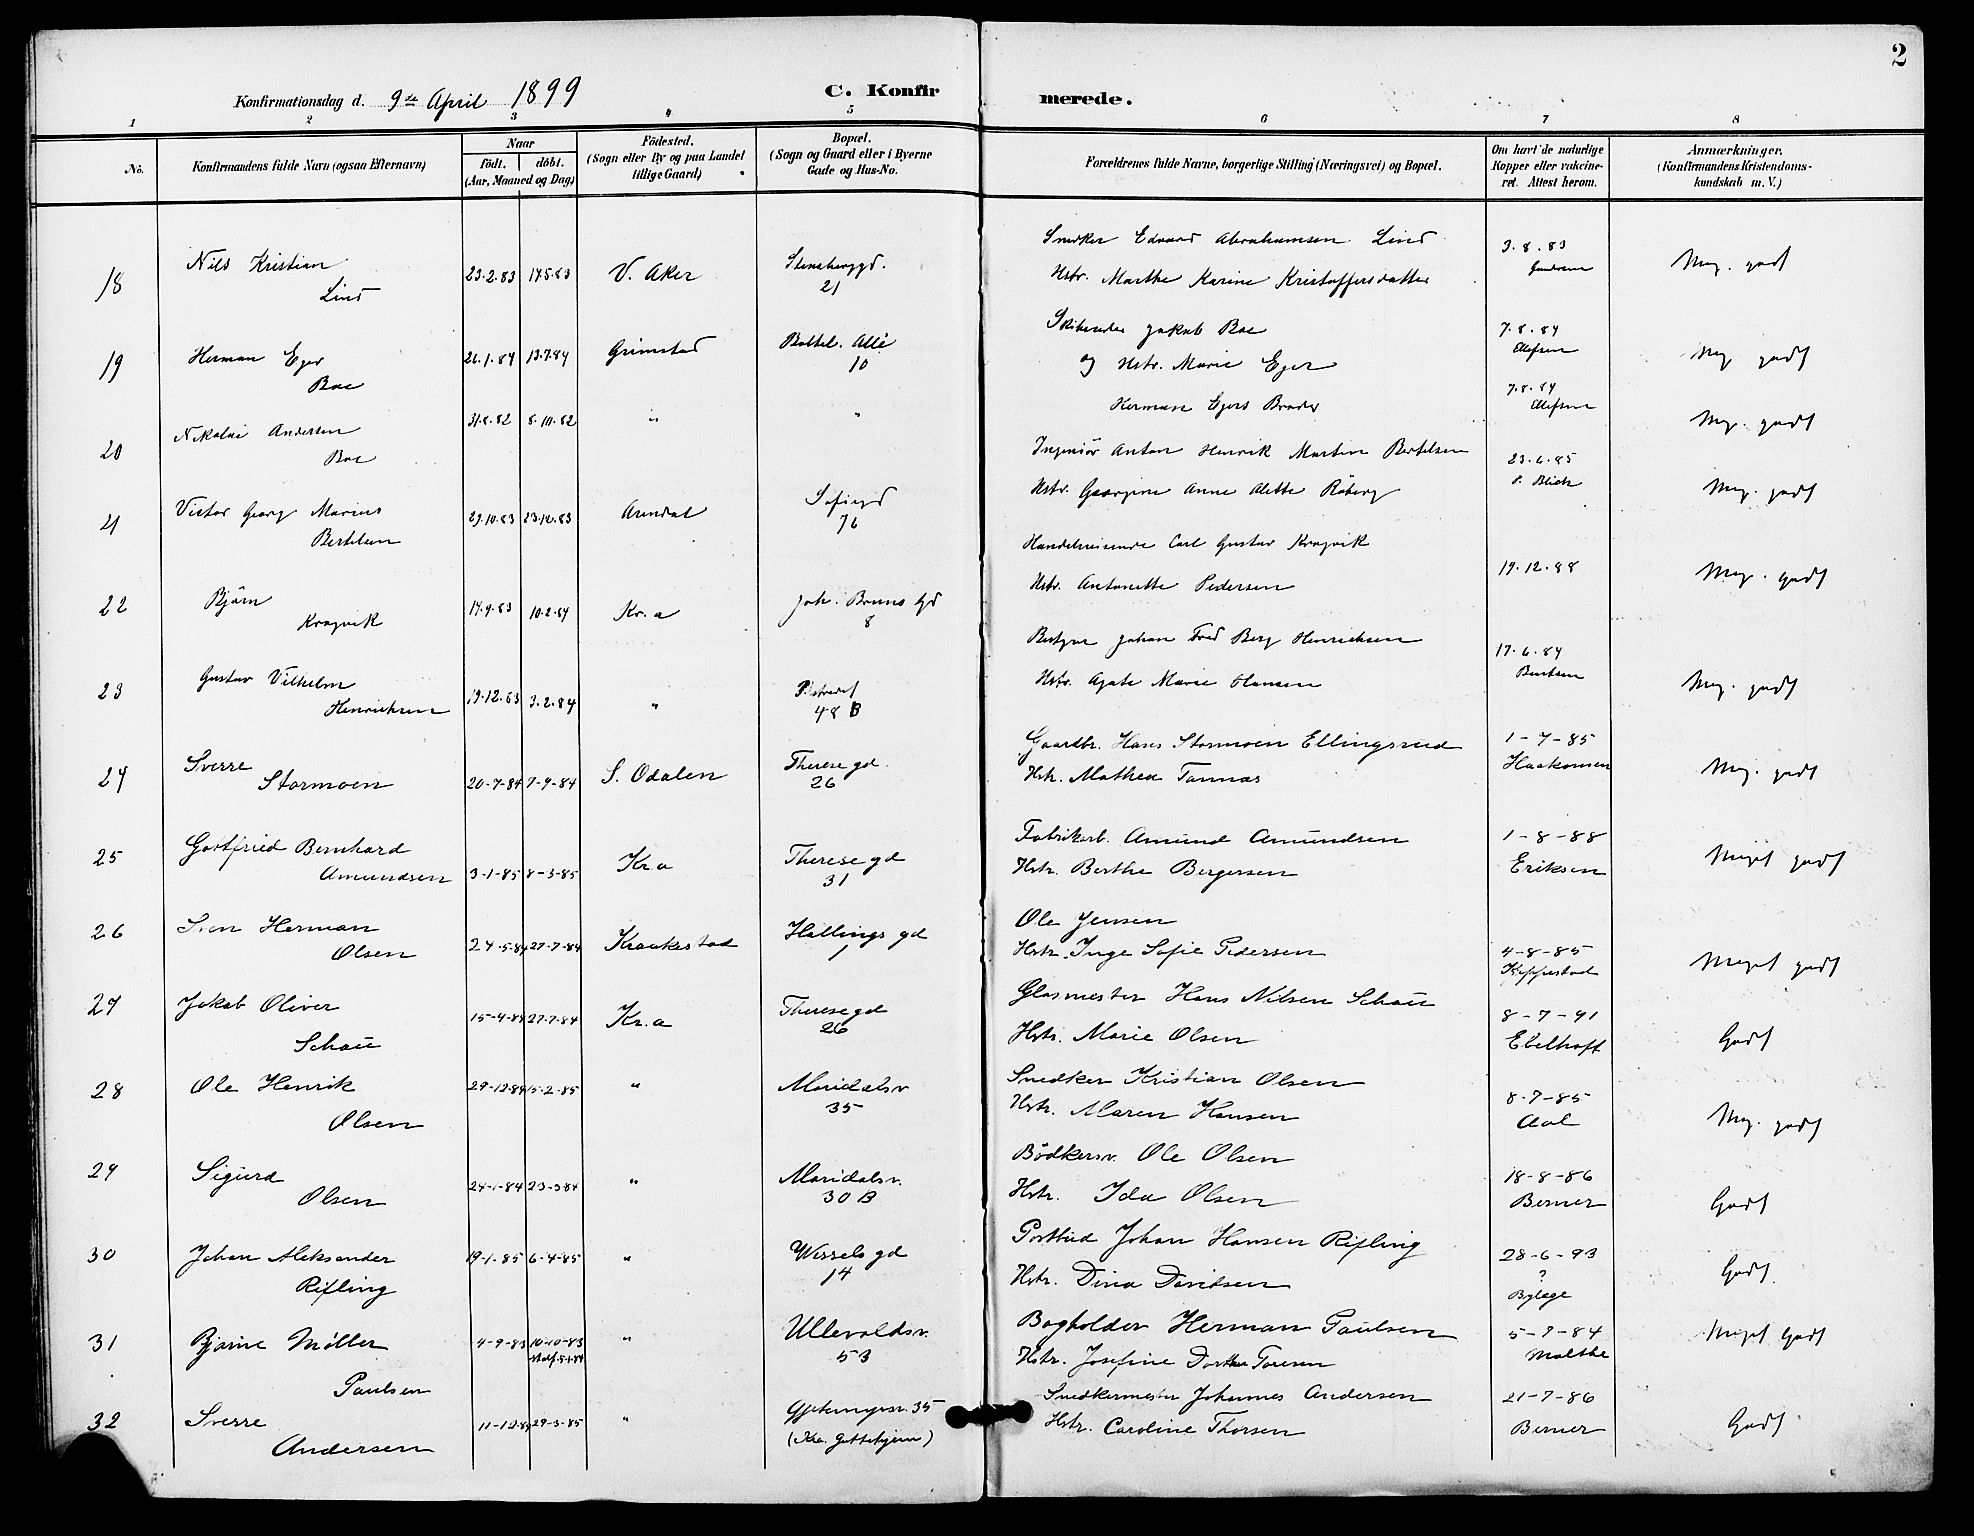 2
Konfirmationsdag d. 9de April 1899
C. Konfirmerede.
1 2 3 4 5 6 7 8
No.
Konfirmandens fulde Navn (ogsaa Efternavn)
Naar
födt. döbt.
(Aar, Maaned og Dag)
Födested.
(Sogn eller By og paa Landet
tillige Gaard)
Bopæl.
(Sogn og Gaard eller i Byerne
Gade og Hus-No.
Forældrenes fulde Navne, borgerlige Stilling (Næringsvei) og Bopæl.
Om havt de naturlige
Kopper eller vakcine-
ret. Attest herom.
Anmærkninger.
(Konfirmandens Kristendoms-
kundskab m. V.)
18 Nils Kristian
Lind
23.2.83 17.5.83 V. Aker
Stensberggd.
21
Snedker Edvard Abrahamsen Lind
Hstr. Marthe Karine Kristoffersdatter
3.8.83
Meg. godt
19 Herman Eger
Boe
26.1.84 13.7.84 Grimstad
Boltel. Allé
10
Skibsreder Jakob Boe
og Hstr. Marie Eger
7.8.84
Ellefsen
Meg godt
20 Nikolai Andersen
Boe
31.8.82 8.10.82 " "
Herman Egers Broder
7.8.84
Ellefsen
Meg. godt
21 Victor Georg Marius
Bertelsen
29.10.83 23.12.83 Arendal
Sofiegd
76
Ingeniör Anton Henrik Martin Bertelsen
Hstr. Georgine Anne Alette Röberg
23.6.85
P. Blich
Meg. godt
22 Björn
Kragvik
17.9.83 10.2.84 Kr.a
Joh. Bruns gd
8
Handelsreisende Carl Gustav Kragvik
Hstr. Antonette Pedersen
19.12.88
Meg. godt
23 Gustav Vilhelm
Henrichsen
19.12.83 3.2.84 "
Pilestrædet
48 B
Bestyrer Johan Fred Berg Henrichsen
Hstr. Agate Marie Hansen
17.6.84
Berntsen
Meg. godt
24 Sverre
Stormoen
20-7-84 7-9-84 S. Odalen
Therese gd.
26
Gaardbr. Hans Stormoen Ellingsrud
Hstr. Mathea Tannæs
1-7-85
Haakonsen
Meg. godt
25 Gottfried Bernhard
Amundsen
3-1-85 8-3-85 Kr.a
Therese gd
31
Fabrikarb. Amund Amundsen
Hstr. Berthe Bergersen
1-8-88
Eriksen
Meget godt
26 Sven Herman
Olsen
24-5-84 27-7-84 Kraakestad
Hallings gd
1
Ole Jensen
Hstr. Inge Sofie Pedersen
4-8-85
Meget godt
27 Jakob Oliver
Schau
15-4-84 27-7-84 Kr.a
Therese gd
26
Glasmester Hans Nilsen Schau
Hstr. Marie Olsen
8-7-91
Ebelhoft
Godt
28 Ole Henrik
Olsen
29-12-84 15-2-85 "
Maridalsv
35
Snedker Kristian Olsen
Hstr. Maren Hansen
8-7-85
Aal
Meg. godt
29 Sigurd
Olsen
24-1-84 23-3-84 "
Maridalsv.
30 B
Bödkersv. Ole Olsen
Hstr. Ida Olsen
18-8-86
Berner
Godt
30 Johan Aleksander
Rifling
19-1-85 6-4-85 "
Wessels gd
14
Postbud Johan Hansen Rifling
Hstr. Dina Davidsen
28-6-93
?
Godt
31 Bjarne Møller
Paulsen
4-9-83 10-10-83
"
Ullevoldsv.
53
Bogholder Herman Paulsen
Hstr. Josefine Dorthea
5-9-84
Malthe
Meget Godt
32 Sverre
Andersen
11-12-84 29-3-85 "
35
Snedkermester Johannes Andersen
Hstr. Caroline Thorsen
21-7-86
Berner
Godt